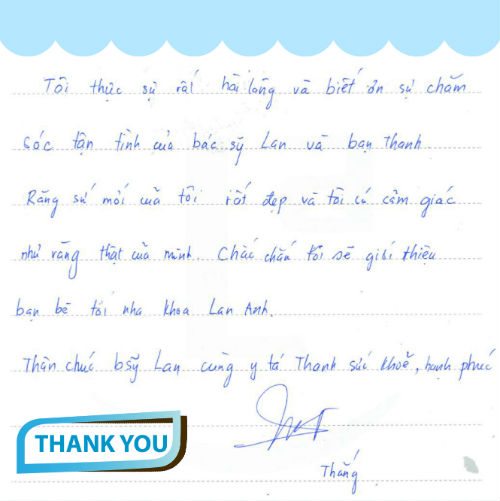 Tôi thực sự rất hài lòng và biết ơn sự chăm
sóc tận tình của bác sỹ Lan và bạn Thanh.
Răng sứ mới của tôi rất đẹp và tôi có cảm giác
như răng thật của mình. Chắc chắn tôi sẽ giới thiệu
bạn bè tới nha khoa Lan Anh.
Thân chúc bsỹ Lan cùng y tá Thanh sức khoẻ, hạnh phúc
THANK YOU
Thắng